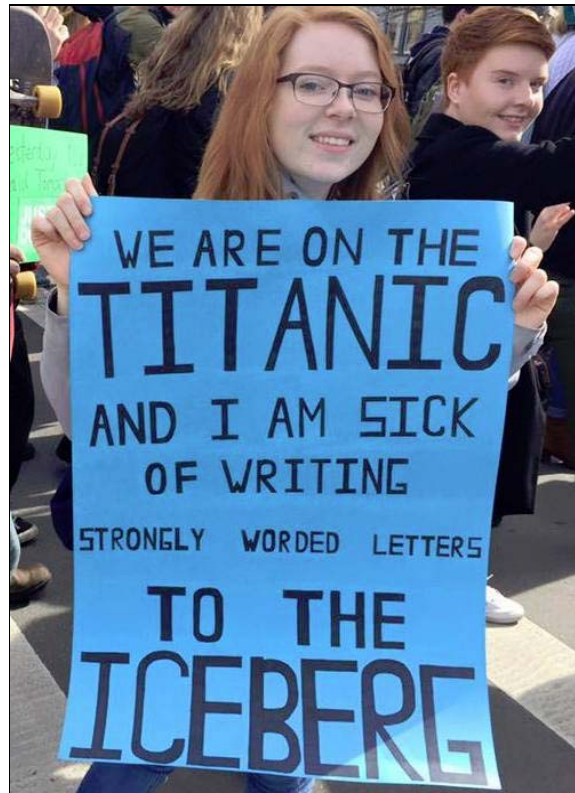 WE ARE ON THE
TITANIC
AND I AM SICK
OF WRITING
STRONGLY WORDED LETTERS
TO THE
ICEBERG